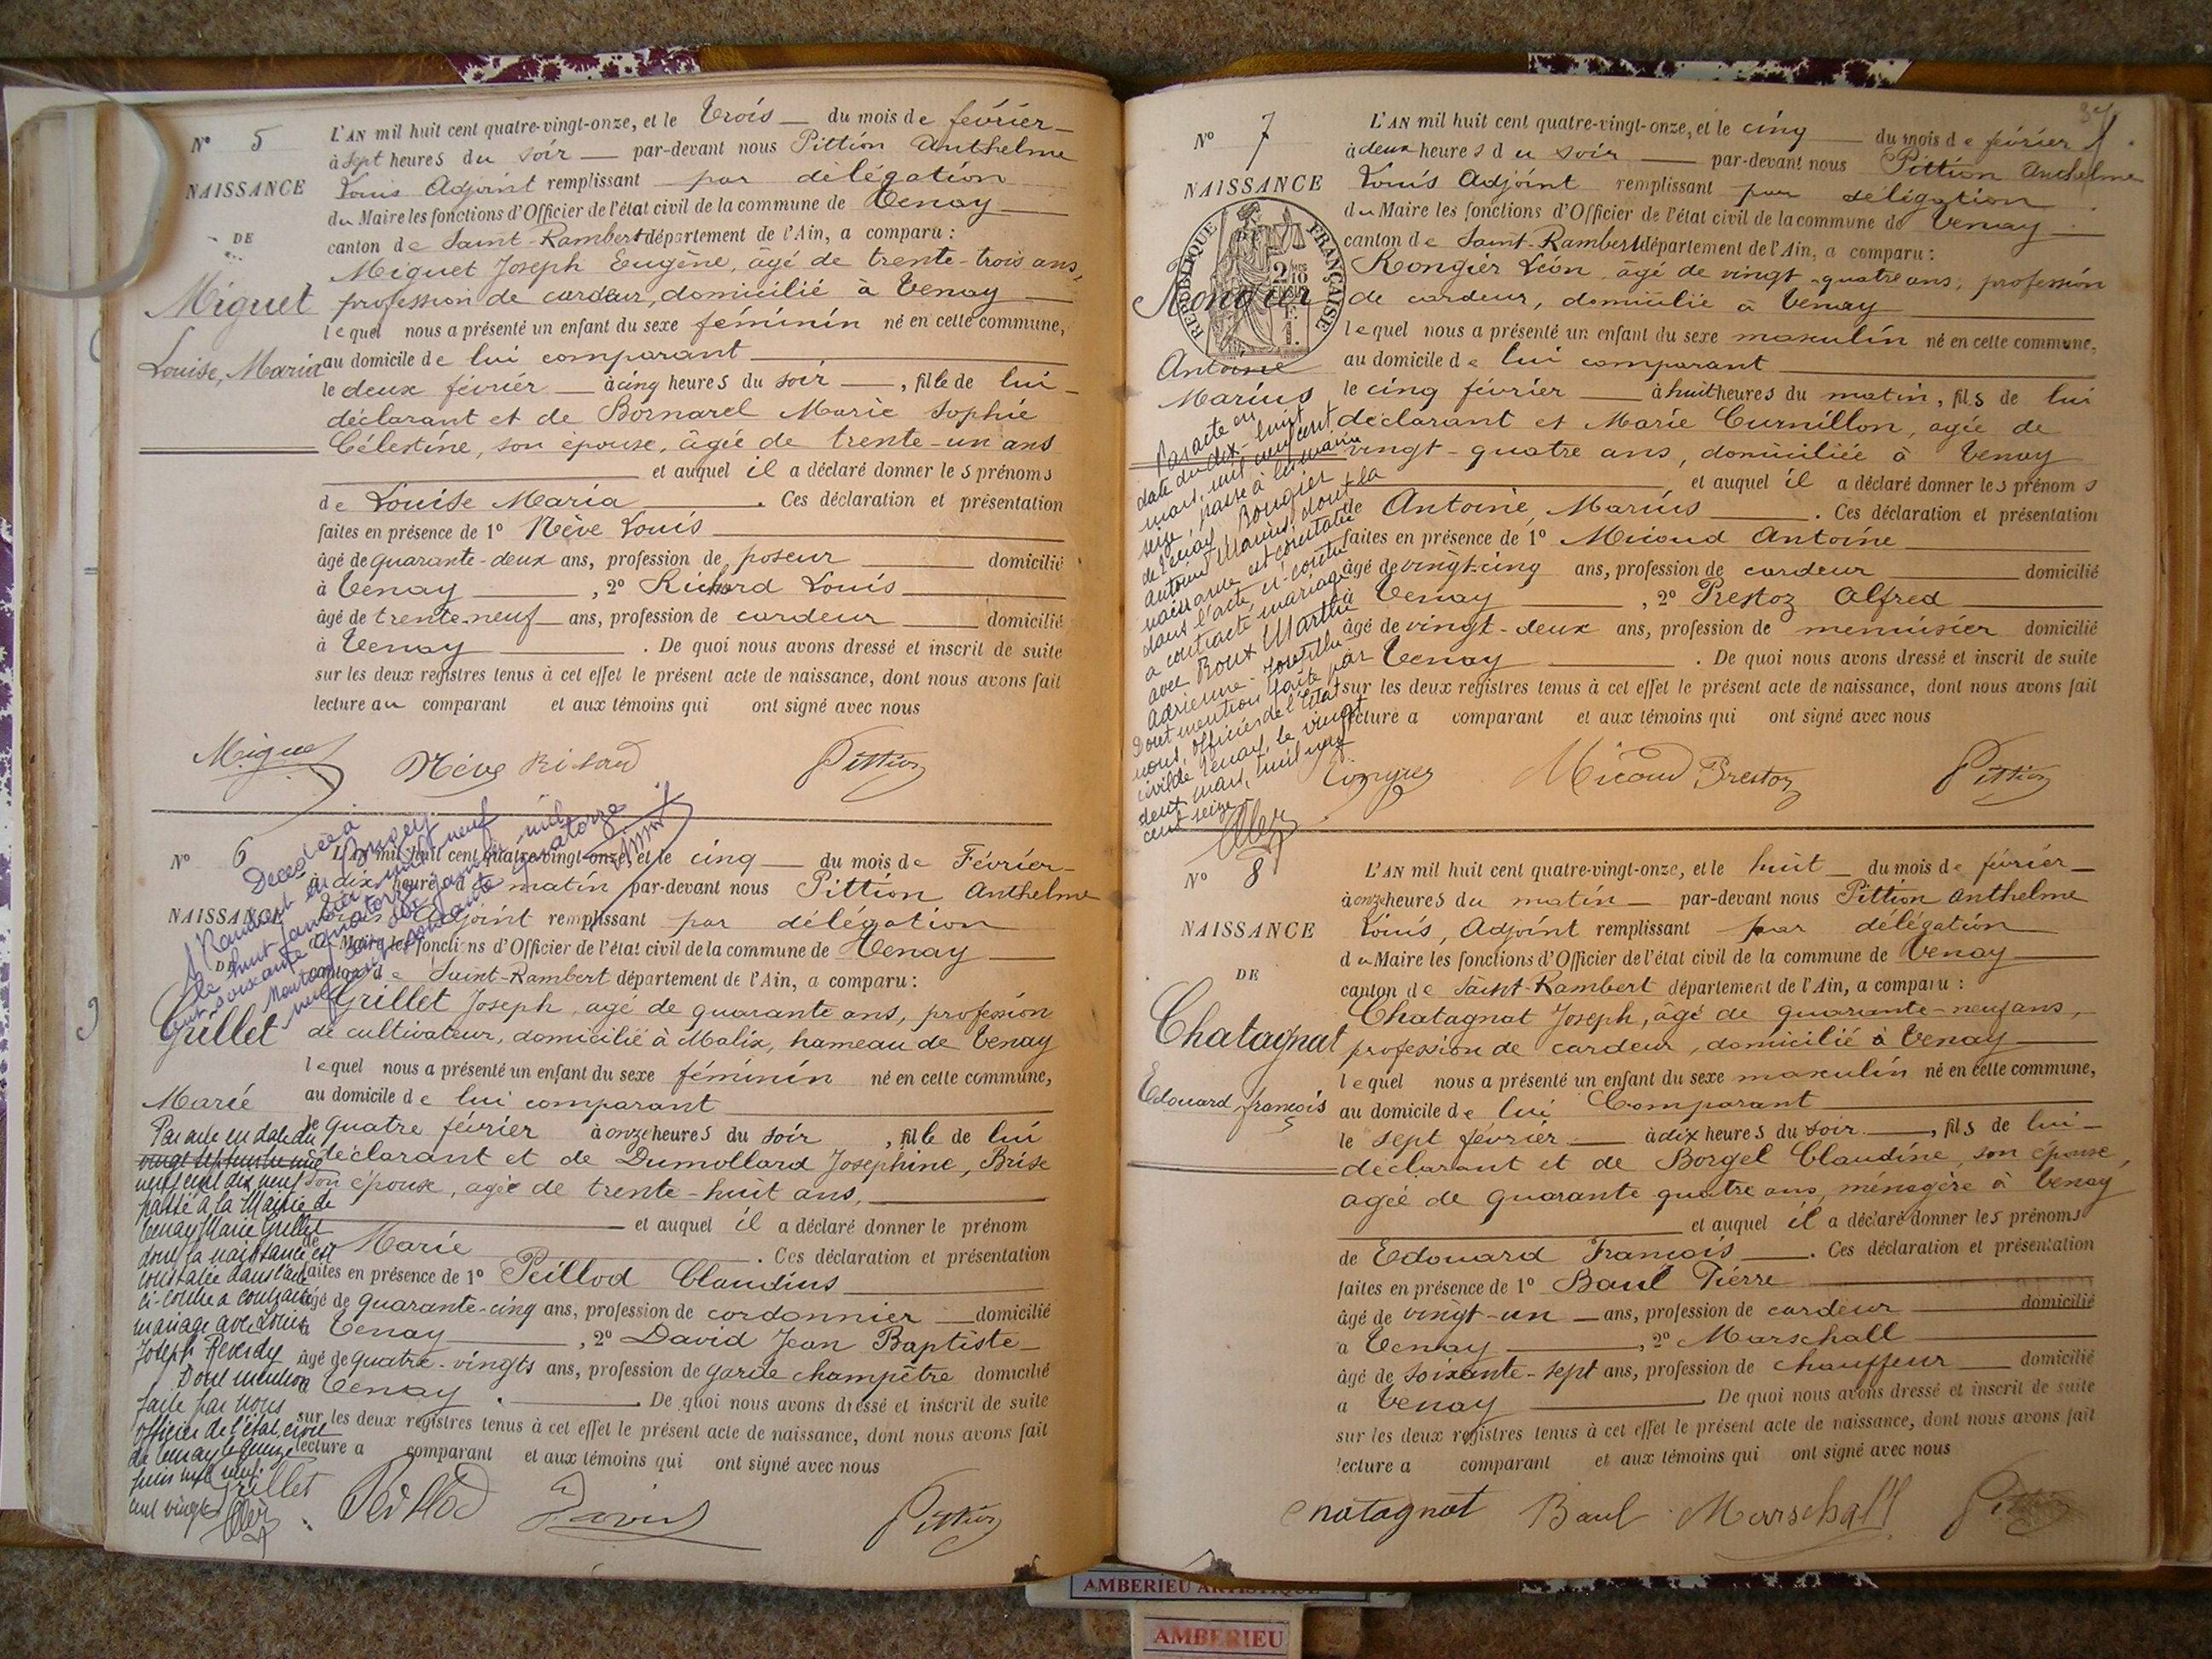 N° 5
NAISSANCE
DE
Miguet
Louise, Maria
L'AN mil huit cent quatre-vingt-onze, et le Trois du mois de février
à sept heures du soir par-devant nous Pittion Anthelme
Louis Adjoint remplissant par délégation
du Maire les fonctions d'Officier de l'état civil de la commune de Tenay
canton de Saint-Rambert département de l'Ain, a comparu :
Miguet Joseph Eugène, âgé de trente-trois ans,
profession de cardeur, domicilié à Tenay
lequel nous a présenté un enfant du sexe féminin né en cette commune,
au domicile de lui comparant
le deux février à cinq heures du soir, fille de lui
déclarant et de Bornarel Marie Sophie
Célestine, son épouse, âgée de trente-un ans
et auquel il a déclaré donner les prénoms
de Louise Maria. Ces déclaration et présentation
faites en présence de 1° Nève Louis
âgé de quarante-deux ans, profession de poseur domicilié
à Tenay, 2° Richard Louis
âgé de trente-neuf ans, profession de cardeur domicilié
à Tenay. De quoi nous avons dressé et inscrit de suite
sur les deux registres tenus à cet effet le présent acte de naissance, dont nous avons fait
lecture au comparant et aux témoins qui ont signé avec nous
Miguet Nève Pittion
N° 6
NAISSANCE
DE
Grillet
Marie
Décédée à
L'AN mil huit cent quatre-vingt-onze, et le cinq du mois de Février
à dix heures du matin par-devant nous Pittion Anthelme
Louis Adjoint remplissant par délégation
du Maire les fonctions d'Officier de l'état civil de la commune de Tenay
canton de Saint-Rambert département de l'Ain, a comparu :
Grillet Joseph, âgé de quarante ans, profession
de cultivateur, domicilié à Malix, hameau de Tenay
lequel nous a présenté un enfant du sexe féminin né en cette commune,
au domicile de lui comparant
le quatre février à onze heures du soir, fille de lui
déclarant et de Dumollard Josephine, Brise
son épouse, agée de trente-huit ans,
et auquel il a déclaré donner le prénom
de Marie. Ces déclaration et présentation
faites en présence de 1° Peillod Claudius
âgé de quarante-cinq ans, profession de cordonnier domicilié
à Tenay, 2° David Jean Baptiste
âgé de quatre-vingts ans, profession de garde champêtre domicilié
à Tenay. De quoi nous avons dressé et inscrit de suite
sur les deux registres tenus à cet effet le présent acte de naissance, dont nous avons fait
lecture a comparant et aux témoins qui ont signé avec nous
Par acte en date du
vingt septembre mil
neuf cent dix neuf
passé à la Mairie de
Tenay Marie Grillet
dont la naissance est
constatée dans l'acte
ci-contre a contracté
mariage avec Louis
Joseph Reverdy
Dont mention
faite par nous
officier de l'état civil
de Tenay le quinze
juin mil neuf
cent vingt
Grillet Peillod David Pittion
N° 7
NAISSANCE
RÉPUBLIQUE FRANÇAISE
Rongier
Antoine
Marius
L'AN mil huit cent quatre-vingt-onze, et le cinq du mois de février
à deux heures du soir par-devant nous Pittion Anthelme
Louis Adjoint remplissant par délégation
du Maire les fonctions d'Officier de l'état civil de la commune de Tenay
canton de Saint-Rambert département de l'Ain, a comparu :
Rongier Léon, âgé de vingt-quatre ans, profession
de cardeur, domicilié à Tenay
lequel nous a présenté un enfant du sexe masculin né en cette commune,
au domicile de lui comparant
le cinq février à huit heures du matin, fils de lui
déclarant et Marie Curnillon, agée de
vingt-quatre ans, domiciliée à Tenay
et auquel il a déclaré donner les prénoms
de Antoine, Marius. Ces déclaration et présentation
faites en présence de 1° Micoud Antoine
âgé de vingt-cinq ans, profession de cardeur domicilié
à Tenay, 2° Prestoz Alfred
âgé de vingt-deux ans, profession de menuisier domicilié
à Tenay. De quoi nous avons dressé et inscrit de suite
sur les deux registres tenus à cet effet le présent acte de naissance, dont nous avons fait
lecture a comparant et aux témoins qui ont signé avec nous
Par acte en
date du dix-huit
mars, mil neuf cent
seize, passé à la mairie
de Tenay, Rongier
Antoine Marius, dont la
naissance est constatée
dans l'acte ci-contre
a contracté mariage
avec Roux Marthe
Adrienne-Josephe
Dont mention faite par
nous, officier de l'Etat
civil de Tenay, le vingt
deux mars, mil neuf
cent seize
Rongier Micoud Prestoz Pittion
N° 8
NAISSANCE
DE
Chatagnat
Edouard, François
L'AN mil huit cent quatre-vingt-onze, et le huit du mois de février
à onze heures du matin par-devant nous Pittion Anthelme
Louis, Adjoint remplissant par délégation
du Maire les fonctions d'Officier de l'état civil de la commune de Tenay
canton de Saint-Rambert département de l'Ain, a comparu :
Chatagnat Joseph, âgé de quarante-neuf ans,
profession de cardeur, domicilié à Tenay
lequel nous a présenté un enfant du sexe masculin né en cette commune,
au domicile de lui Comparant
le sept février à dix heures du soir, fils de lui
déclarant et de Borgel Claudine, son épouse,
agée de quarante quatre ans, ménagère à Tenay
et auquel il a déclaré donner les prénoms
de Edouard François. Ces déclaration et présentation
faites en présence de 1° Baul Pierre
âgé de vingt-un ans, profession de cardeur domicilié
à Tenay, 2° Marschall
âgé de soixante-sept ans, profession de chauffeur domicilié
à Tenay. De quoi nous avons dressé et inscrit de suite
sur les deux registres tenus à cet effet le présent acte de naissance, dont nous avons fait
lecture a comparant et aux témoins qui ont signé avec nous
Chatagnat Baul Marschall Pittion
AMBERIEU ARTISTIQUE
AMBERIEU